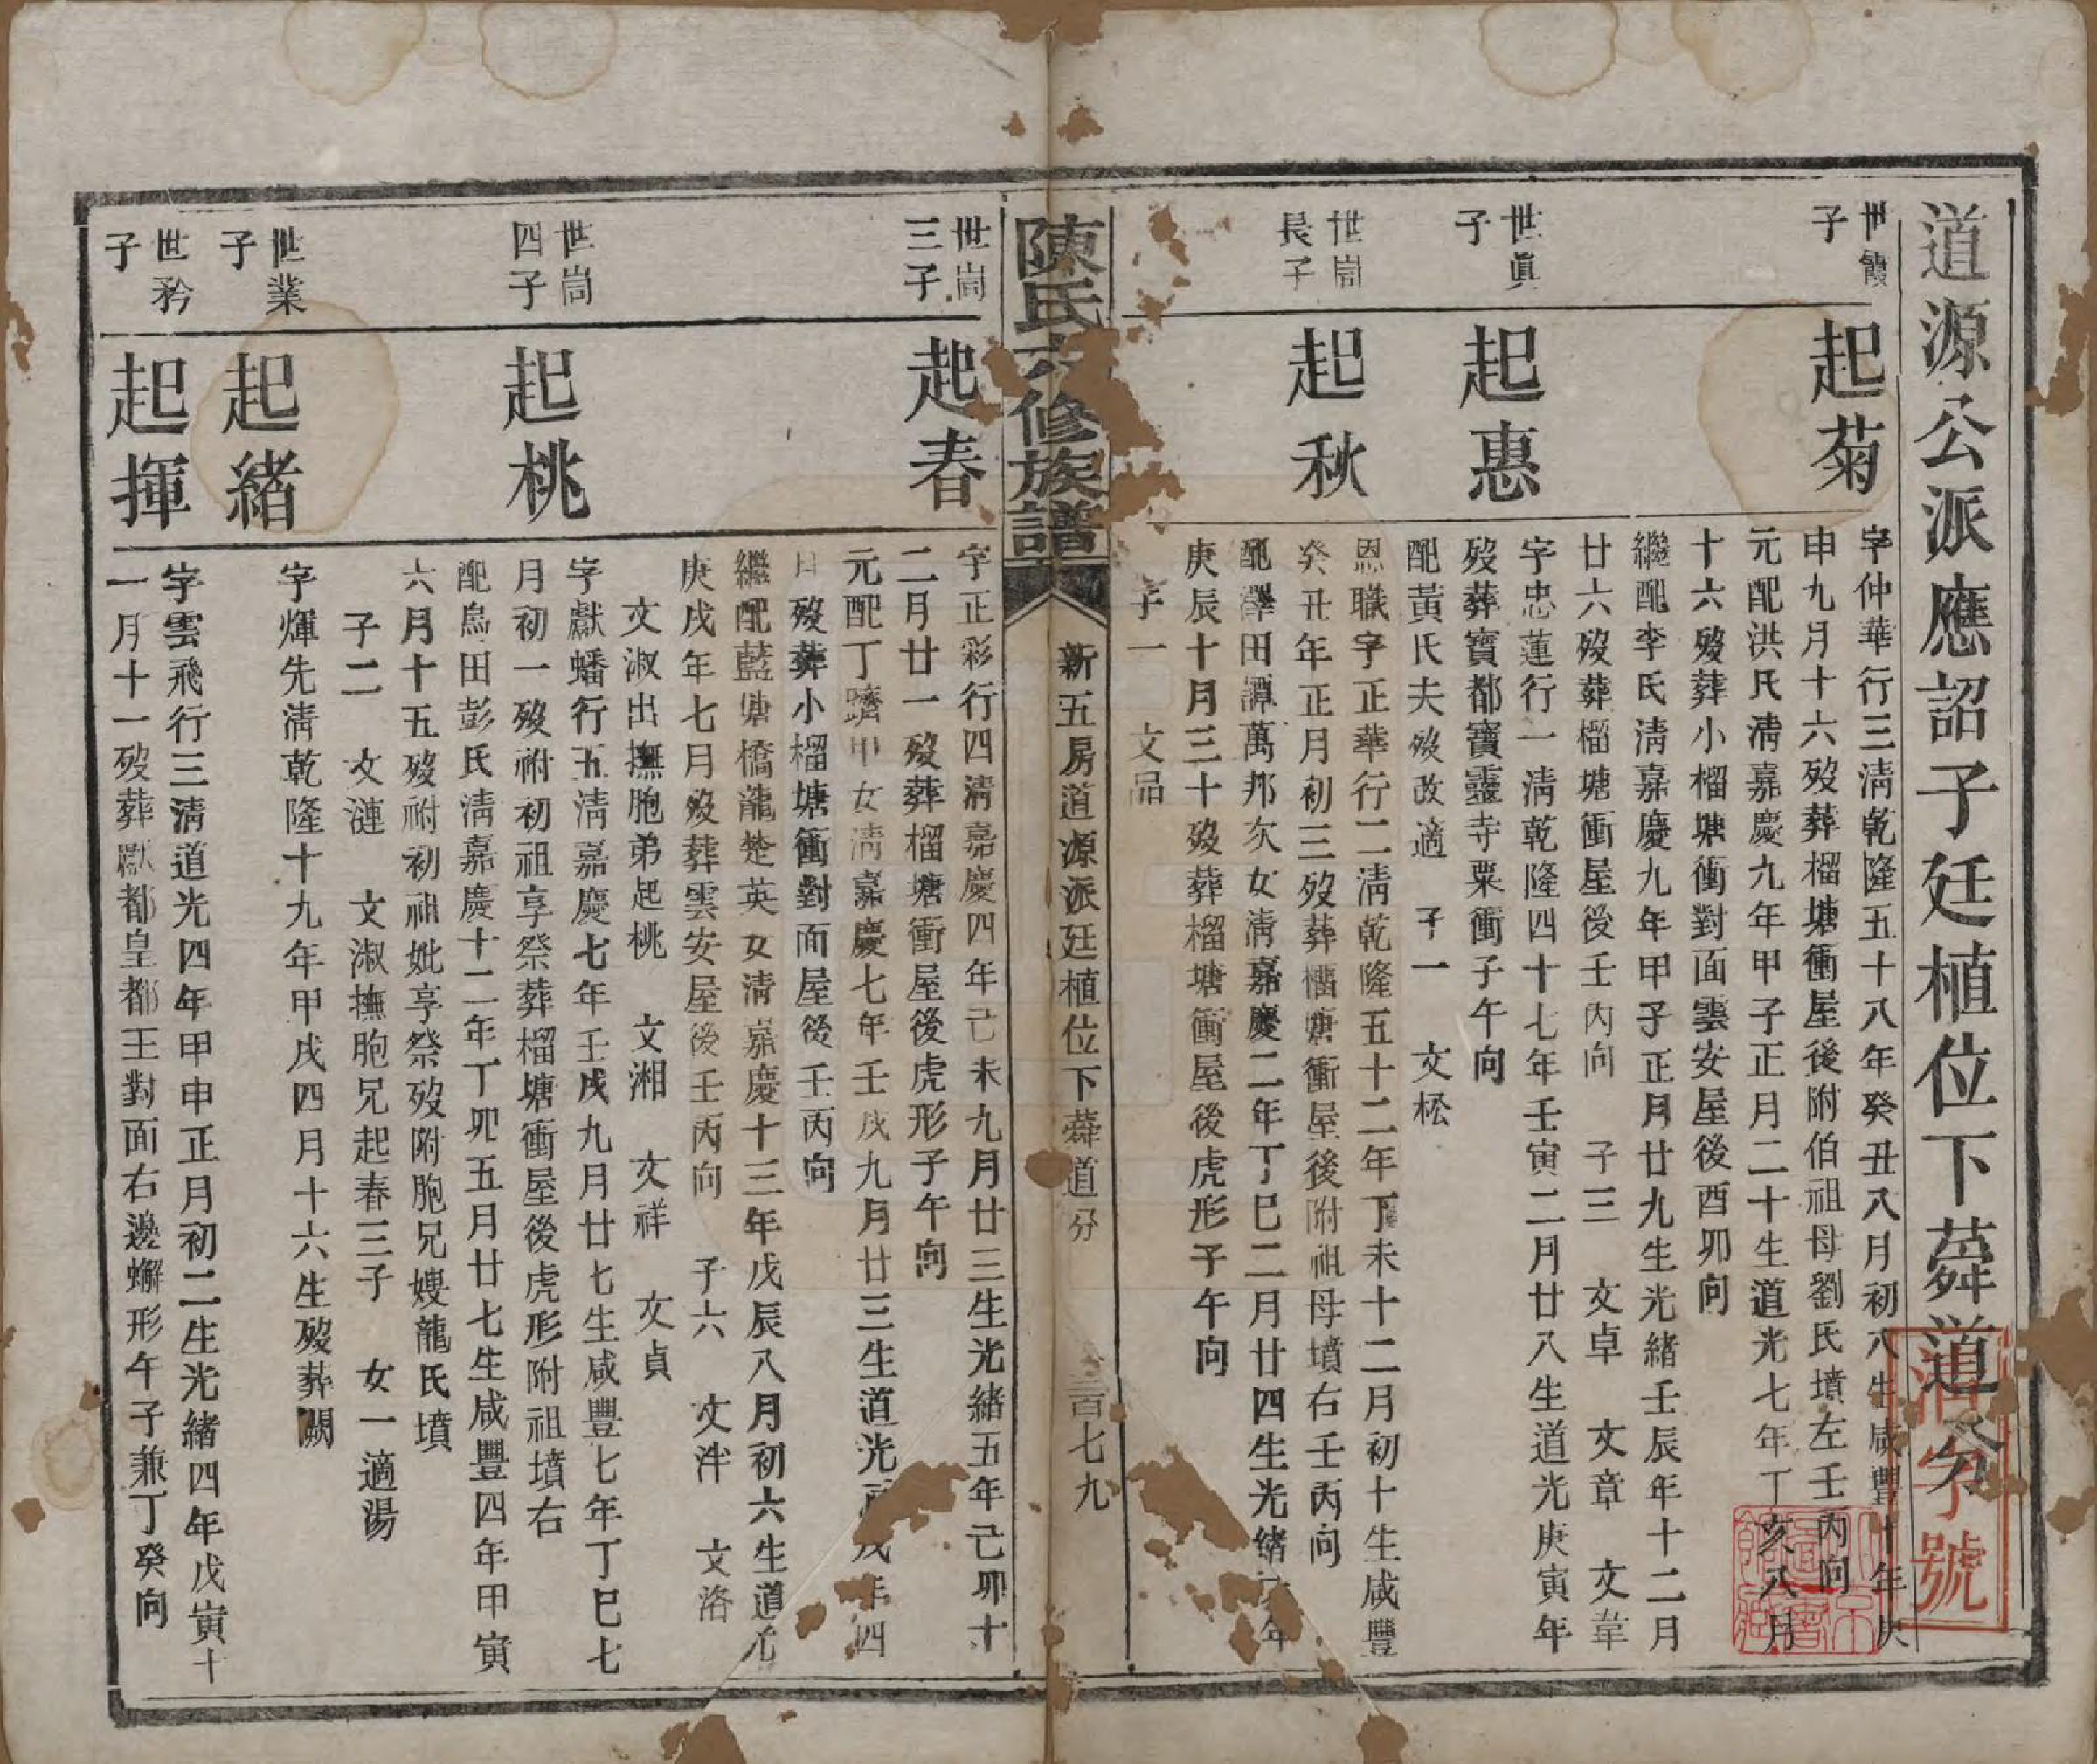 道源公派應詔子廷植位下蕣道分
世霞子
起菊
字仲華行三淸乾隆五十八年癸丑八月初八生咸豐十年庚
申九月十六歿葬榴塘衝屋後附伯祖母劉氏墳左壬丙向
元配洪氏淸嘉慶九年甲子正月二十生道光七年丁亥八月
十六歿葬小榴塘衝對面雲安屋後酉卯向
繼配李氏淸嘉慶九年甲子正月廿九生光緒壬辰年十二月
廿六歿葬榴塘衝屋後壬丙向 子三 文卓 文章 文葦
世眞子
起惠
字忠蓮行一淸乾隆四十七年壬寅二月廿八生道光庚寅年
歿葬寶都寶靈寺栗衝子午向
配黃氏夫歿改適 子一 文松
世崗長子
起秋
恩職字正華行二淸乾隆五十二年丁未十二月初十生咸豐
癸丑年正月初三歿葬榴塘衝屋後附祖母墳右壬丙向
配澤田譚萬邦次女淸嘉慶二年丁巳二月廿四生光緒六年
庚辰十月三十歿葬榴塘衝屋後虎形子午向
子一 文品
陳氏六修族譜
新五房道源派廷植位下蕣道分
三百七九
世崗三子
起春
字正彩行四淸嘉慶四年己未九月廿三生光緒五年己卯十
二月廿一歿葬榴塘衝屋後虎形子午向
元配丁躋甲女淸嘉慶七年壬戌九月廿三生道光戊年四
月歿葬小榴塘衝對面屋後壬丙向
繼配藍塘橋龍楚英女淸嘉慶十三年戊辰八月初六生道光
庚戌年七月歿葬雲安屋後壬丙向 子六 文泮 文洛
文淑出撫胞弟起桃 文湘 文祥 文貞
世崗四子
起桃
字獻蟠行五淸嘉慶七年壬戌九月廿七生咸豐七年丁巳七
月初一歿祔初祖享祭葬榴塘衝屋後虎形附祖墳右
配烏田彭氏淸嘉慶十二年丁卯五月廿七生咸豐四年甲寅
六月十五歿祔初祖妣享祭歿附胞兄嫂龍氏墳
子二 文漣 文淑撫胞兄起春三子 女一適湯
世業子
起緒
字煇先淸乾隆十九年甲戌四月十六生歿葬闕
世矜子
起揮
字雲飛行三淸道光四年甲申正月初二生光緒四年戊寅十
一月十一歿葬默都皇都王對面右邊蠏形午子兼丁癸向
字號